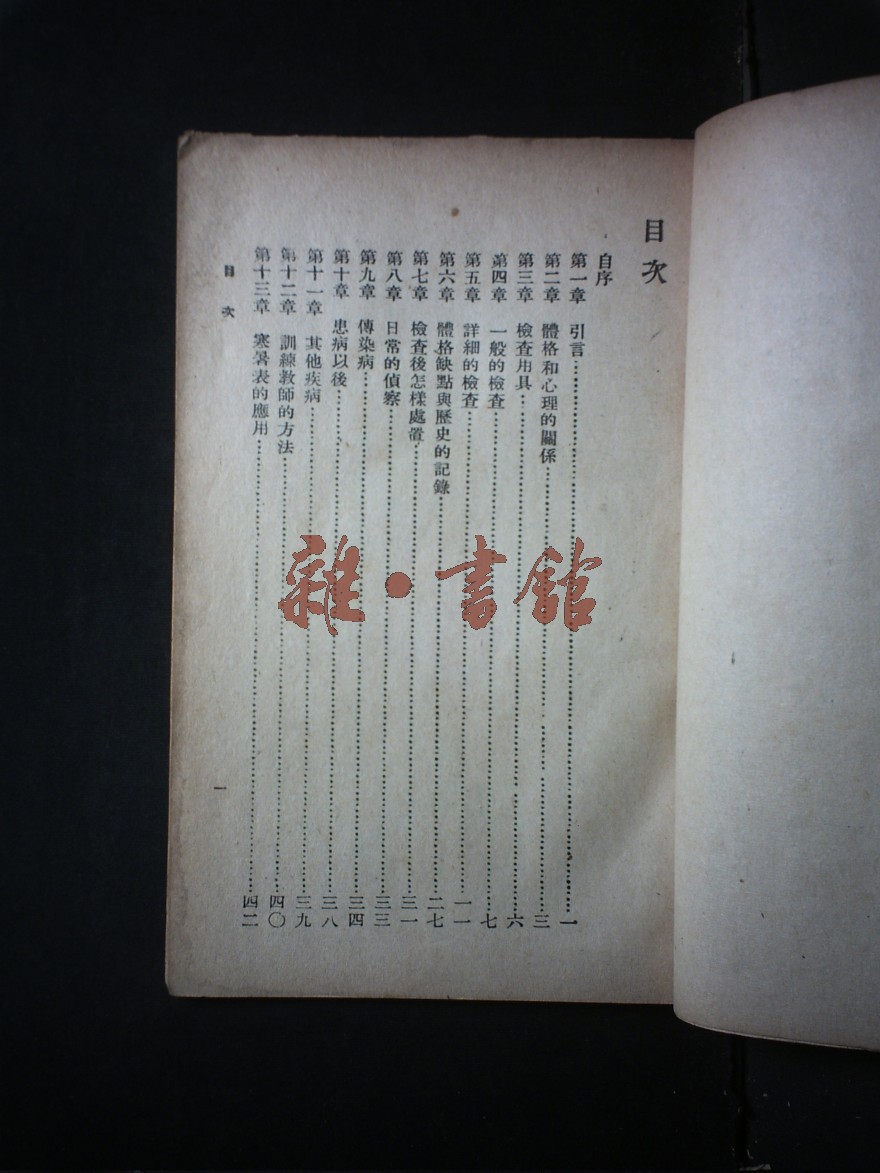 目次
自序
第一章 引言……一
第二章 體格和心理的關係……三
第三章 檢查用具……六
第四章 一般的檢查……七
第五章 詳細的檢查……一一
第六章 體格缺點與歷史的記錄……二七
第七章 檢查後怎樣處置……三一
第八章 日常的偵察……三三
第九章 傳染病……三四
第十章 患病以後……三八
第十一章 其他疾病……三九
第十二章 訓練教師的方法……四〇
第十三章 寒暑表的應用……四二
目次
一
雜·書館